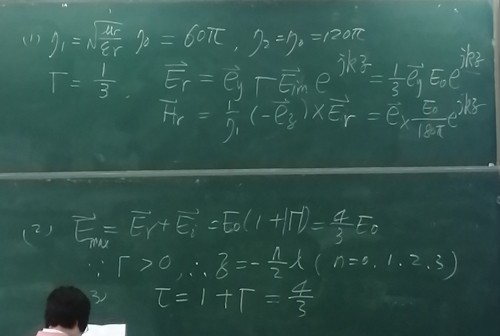 (1) η₁ = √(μr/εr) η₀ = 60π, η₂ = η₀ = 120π
Γ = 1/3, E⃗r = e⃗y Γ E⃗im e^{jkz} = 1/3 e⃗y E₀ e^{jkz}
H⃗r = 1/η₁ (-e⃗z) × E⃗r = e⃗x E₀/180π e^{jkz}
(2) E⃗max = E⃗r + E⃗i = E₀(1+|Γ|) = 4/3 E₀
∵ Γ > 0, ∴ z = -n/2 λ (n=0.1.2.3)
3) τ = 1 + Γ = 4/3